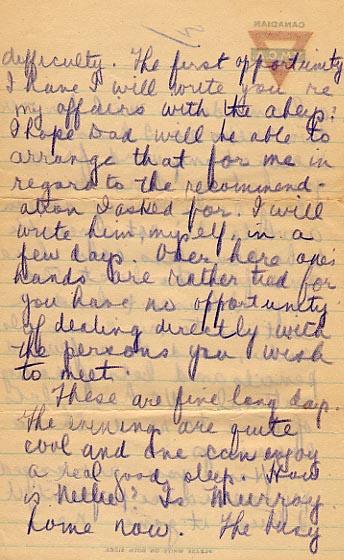 CANADIAN
Y.M.C.A.
difficulty. The first opportunity
I have I will write you re
my affairs with the
I hope Dad will be able to
arrange that for me in
regard to the recommend-
ation I asked for. I will
write him myself in a
few days. Over here one's
hands are rather tied for
you have no opportunity
of dealing directly with
the persons you wish
to meet.
These are fine long day.
The evening are quite
cool and one can enjoy
a real good sleep. How
is Nellie? Is Murray
home now. The busy
PLEASE WRITE ON BOTH SIDES